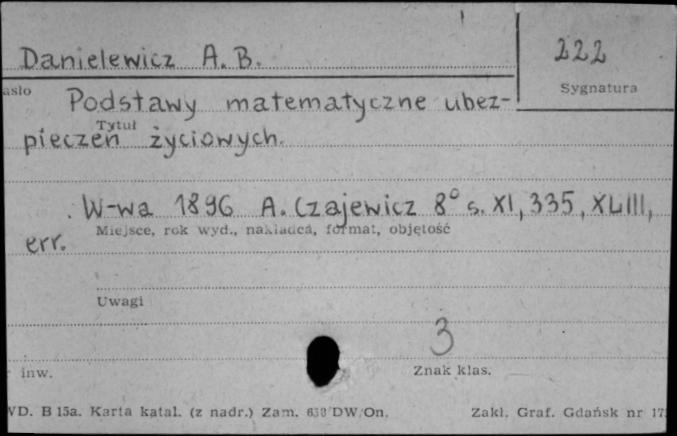 Danielewicz A. B.
222
asło
Sygnatura
Podstawy matematyczne ubez-
Tytuł
pieczeń życiowych.
W-wa 1896 A. Czajewicz 8° s. XI, 335, XLIII,
Miejsce, rok wyd., nakładca, format, objętość
err.
Uwagi
3
inw.
Znak klas.
WD. B 15a. Karta katal. (z nadr.) Zam. DW/On.
Zakł. Graf. Gdańsk nr 17